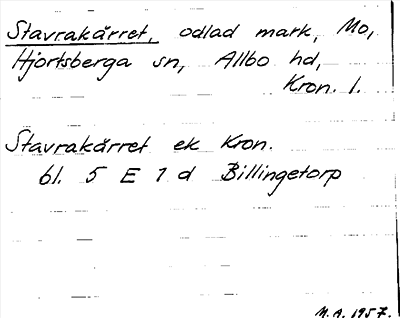 Stavrakärret, odlad mark, Mo,
Hjortsberga sn, Allbo hd,
Kron. l.
Stavrakärret ek Kron.
bl. 5 E 1 d Billingetorp
M.A. 1957.